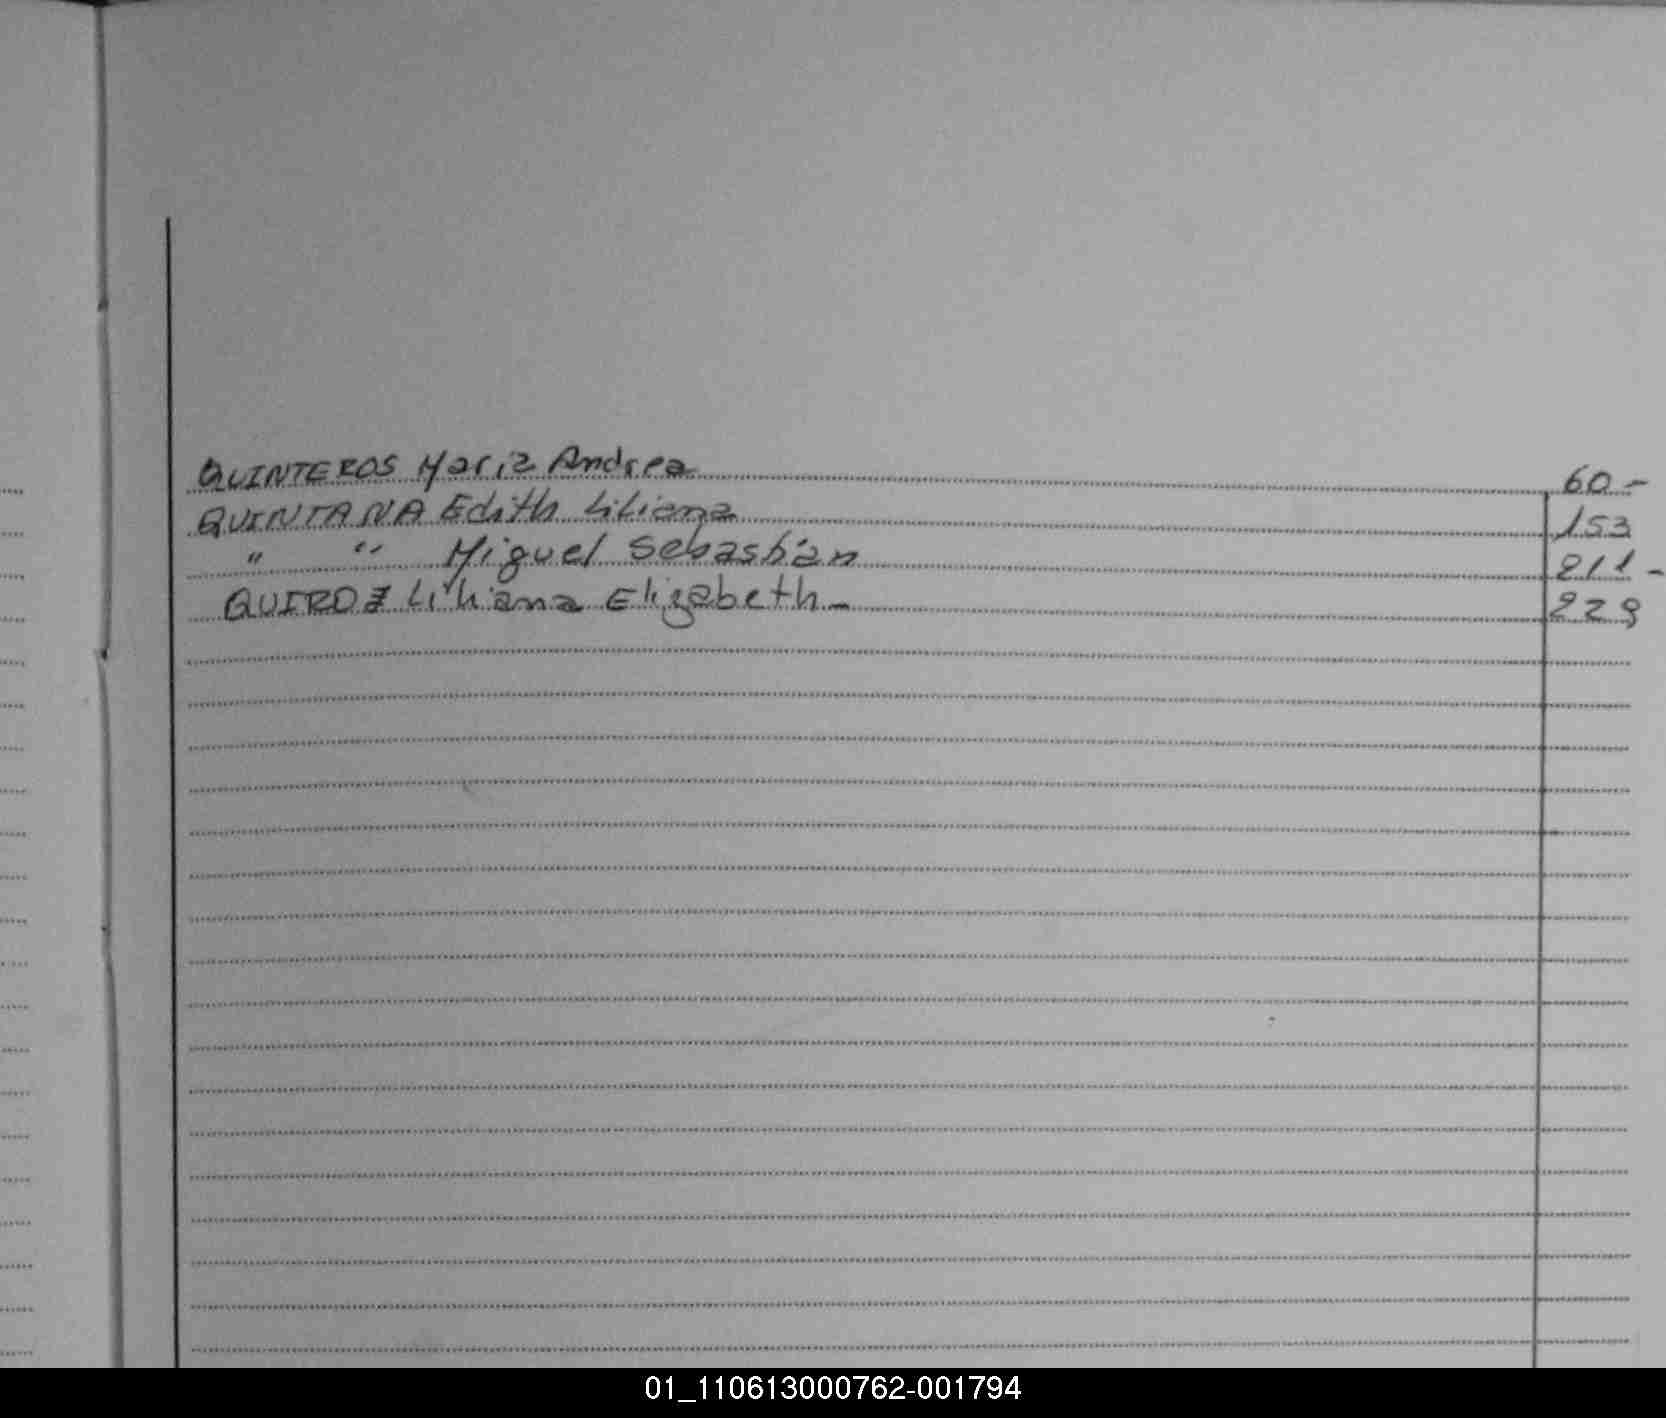 QUINTEROS Maria Andrea 60-
QUINTANA Edith Liliana 153
" " Miguel Sebastián 211-
QUIROZ Liliana Elizabeth- 229
01_110613000762-001794